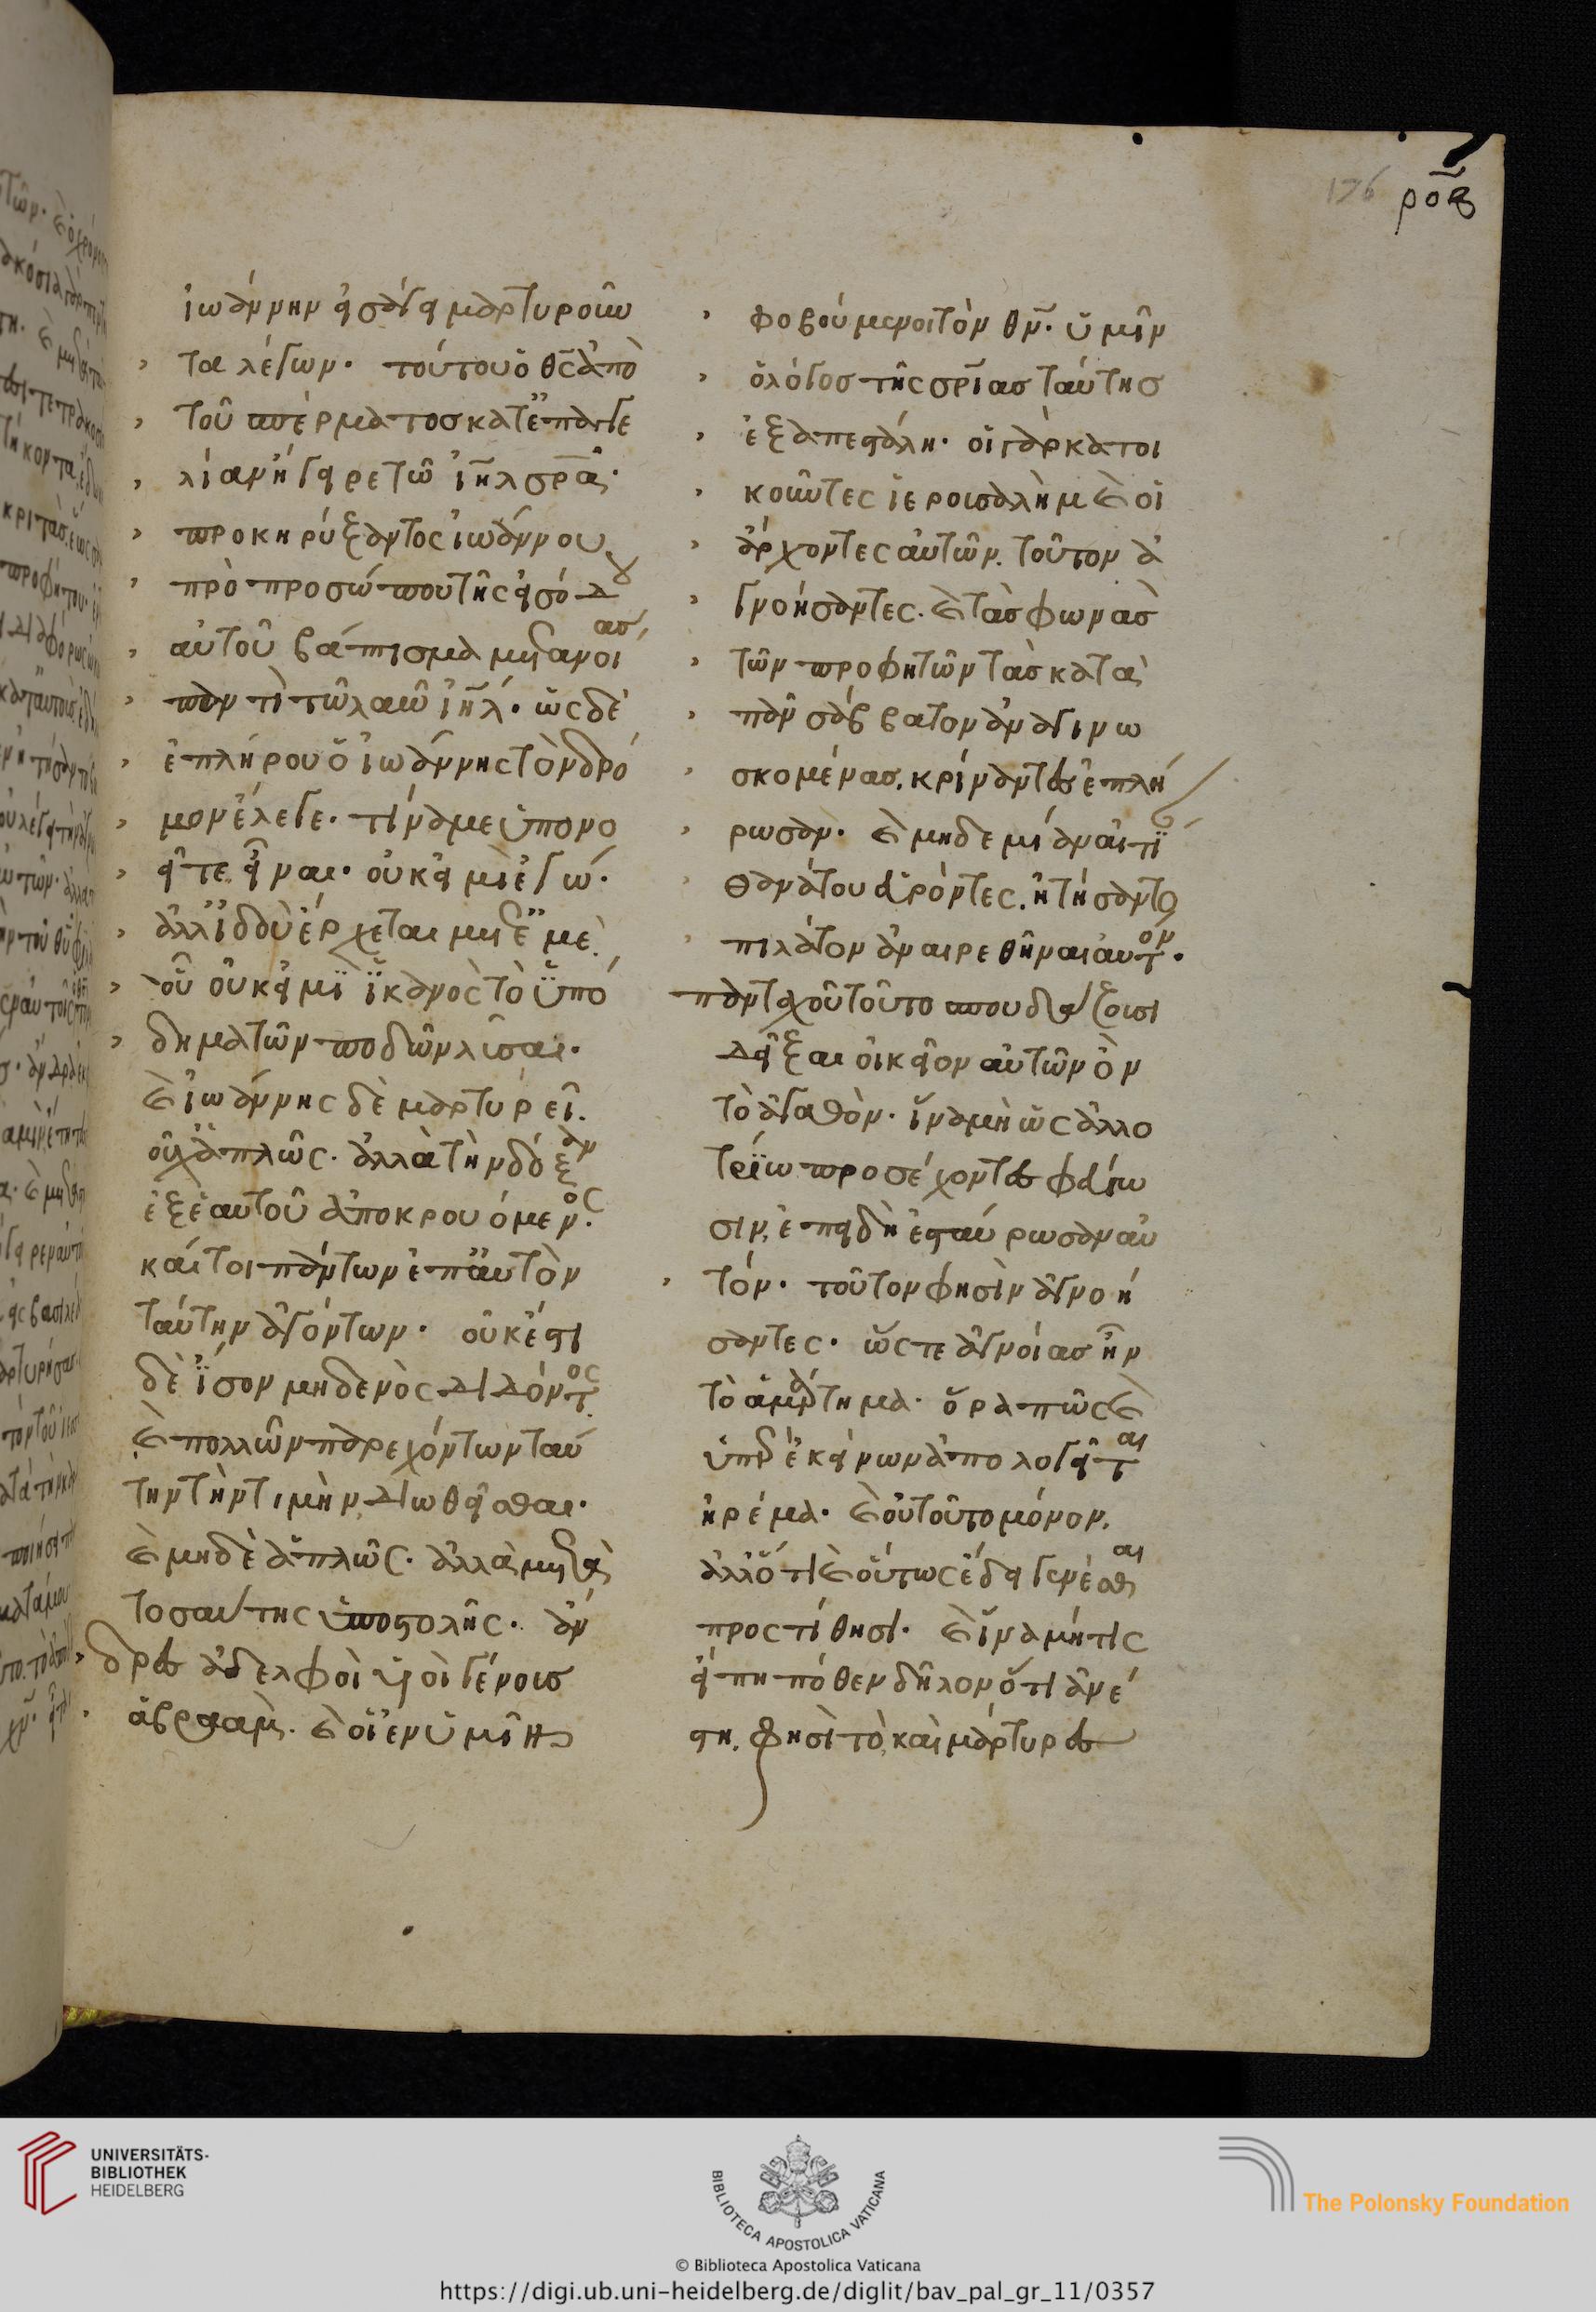 176 ροβ
ἰωάννην εἰσάγει μαρτυροῦν
τα λέγων· τούτου ὁ θς ἀπὸ
τοῦ σπέρματος κατ' ἐπαγγε
λίαν ἤγειρε τῶ ιηλ σρίαν·
προκηρύξαντος ἰωάννου
πρὸ προσώπου τῆς εἰσόδου
αὐτοῦ βάπτισμα μετανοίας
παντὶ τῶ λαῶ ιηλ· ὡς δὲ
ἐπλήρου ὁ ἰωάννης τὸν δρό
μον ἔλεγε· τίνα με ὑπονο
εῖτε εἶναι· οὐκ εἰμὶ ἐγώ·
ἀλλ' ἰδοὺ ἔρχεται μετ' ἐμὲ
οὗ οὐκ εἰμὶ ἱκανὸς τὸ ὑπό
δημα τῶν ποδῶν λῦσαι·
καὶ ἰωάννης δὲ μαρτυρεῖ.
οὐχ ἁπλῶς· ἀλλὰ τὴν δόξαν
ἐξ ἑαυτοῦ ἀποκρουόμενος.
καίτοι πάντων ἐπ' αὐτὸν
ταύτην ἀγόντων· οὐκ ἔστι
δὲ ἴσον μηδενὸς διδόντος
καὶ πολλῶν παρεχόντων ταύ
την τὴν τιμὴν διωθεῖσθαι·
καὶ μηδὲ ἁπλῶς· ἀλλὰ μετὰ
τοσαύτης ὑποστολῆς· ἄν
δρες ἀδελφοὶ υἱοὶ γένους
ἀβραὰμ. καὶ οἱ ἐν ὑμῖν
φοβούμενοι τὸν θν· ὑμῖν
ὁ λόγος τῆς σρίας ταύτης
ἐξαπεστάλη· οἱ γὰρ κατοι
κοῦντες ἱερουσαλὴμ καὶ οἱ
ἄρχοντες αὐτῶν. τοῦτον ἀ
γνοήσαντες. καὶ τὰς φωνὰς
τῶν προφητῶν τὰς κατὰ
πᾶν σάββατον ἀναγινω
σκομένας. κρίναντες ἐπλή
ρωσαν· καὶ μηδεμίαν αἰτί
θανάτου εὑρόντες. ἠτήσαντο
πιλάτον ἀναιρεθῆναι αὐτόν·
πανταχοῦ τοῦτο σπουδάζουσι
δεῖξαι οἰκεῖον αὐτῶν ὂν
τὸ ἀγαθόν· ἵνα μὴ ὡς ἀλλο
τρίω προσέχοντες φεύγω
σιν, ἐπειδὴ ἐσταύρωσαν αὐ
τόν· τοῦτον φησὶν ἀγνοή
σαντες· ὥστε ἀγνοίας ἦν
τὸ ἁμάρτημα· ὅρα πῶς καὶ
ὑπὲρ ἐκείνων ἀπολογεῖται
ἠρέμα· καὶ οὐ τοῦτο μόνον.
ἀλλ' ὅτι καὶ οὕτως ἔδει γενέσθαι
προστίθησι· καὶ ἵνα μή τις
εἴπη πόθεν δῆλον ὅτι ἀνέ
στη. φησὶ τὸ, καὶ μάρτυρες
UNIVERSITÄTS-
BIBLIOTHEK
HEIDELBERG
BIBLIOTECA APOSTOLICA VATICANA
The Polonsky Foundation
© Biblioteca Apostolica Vaticana
https://digi.ub.uni-heidelberg.de/diglit/bav_pal_gr_11/0357